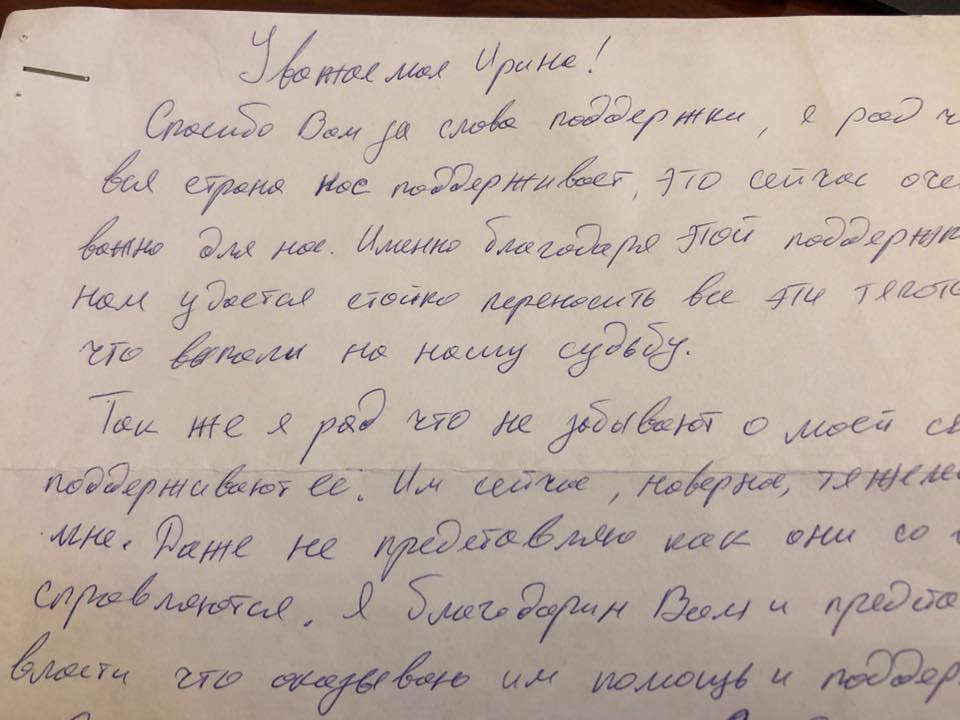 Уважаемая Ирина!
Спасибо Вам за слова поддержки, я рад ч
вся страна нас поддерживает, это сейчас оче
важно для нас. Именно благодаря этой поддержк
нам удается стойко переносить все эти тягото
что выпали на нашу судьбу.
Так же я рад что не забывают о моей се
поддерживают ее. Им сейчас, наверна, тяжеле
мне. Даже не представляю как они со
справляются. Я благодарин Вам и предста
власти что оказываю им помощь и поддер